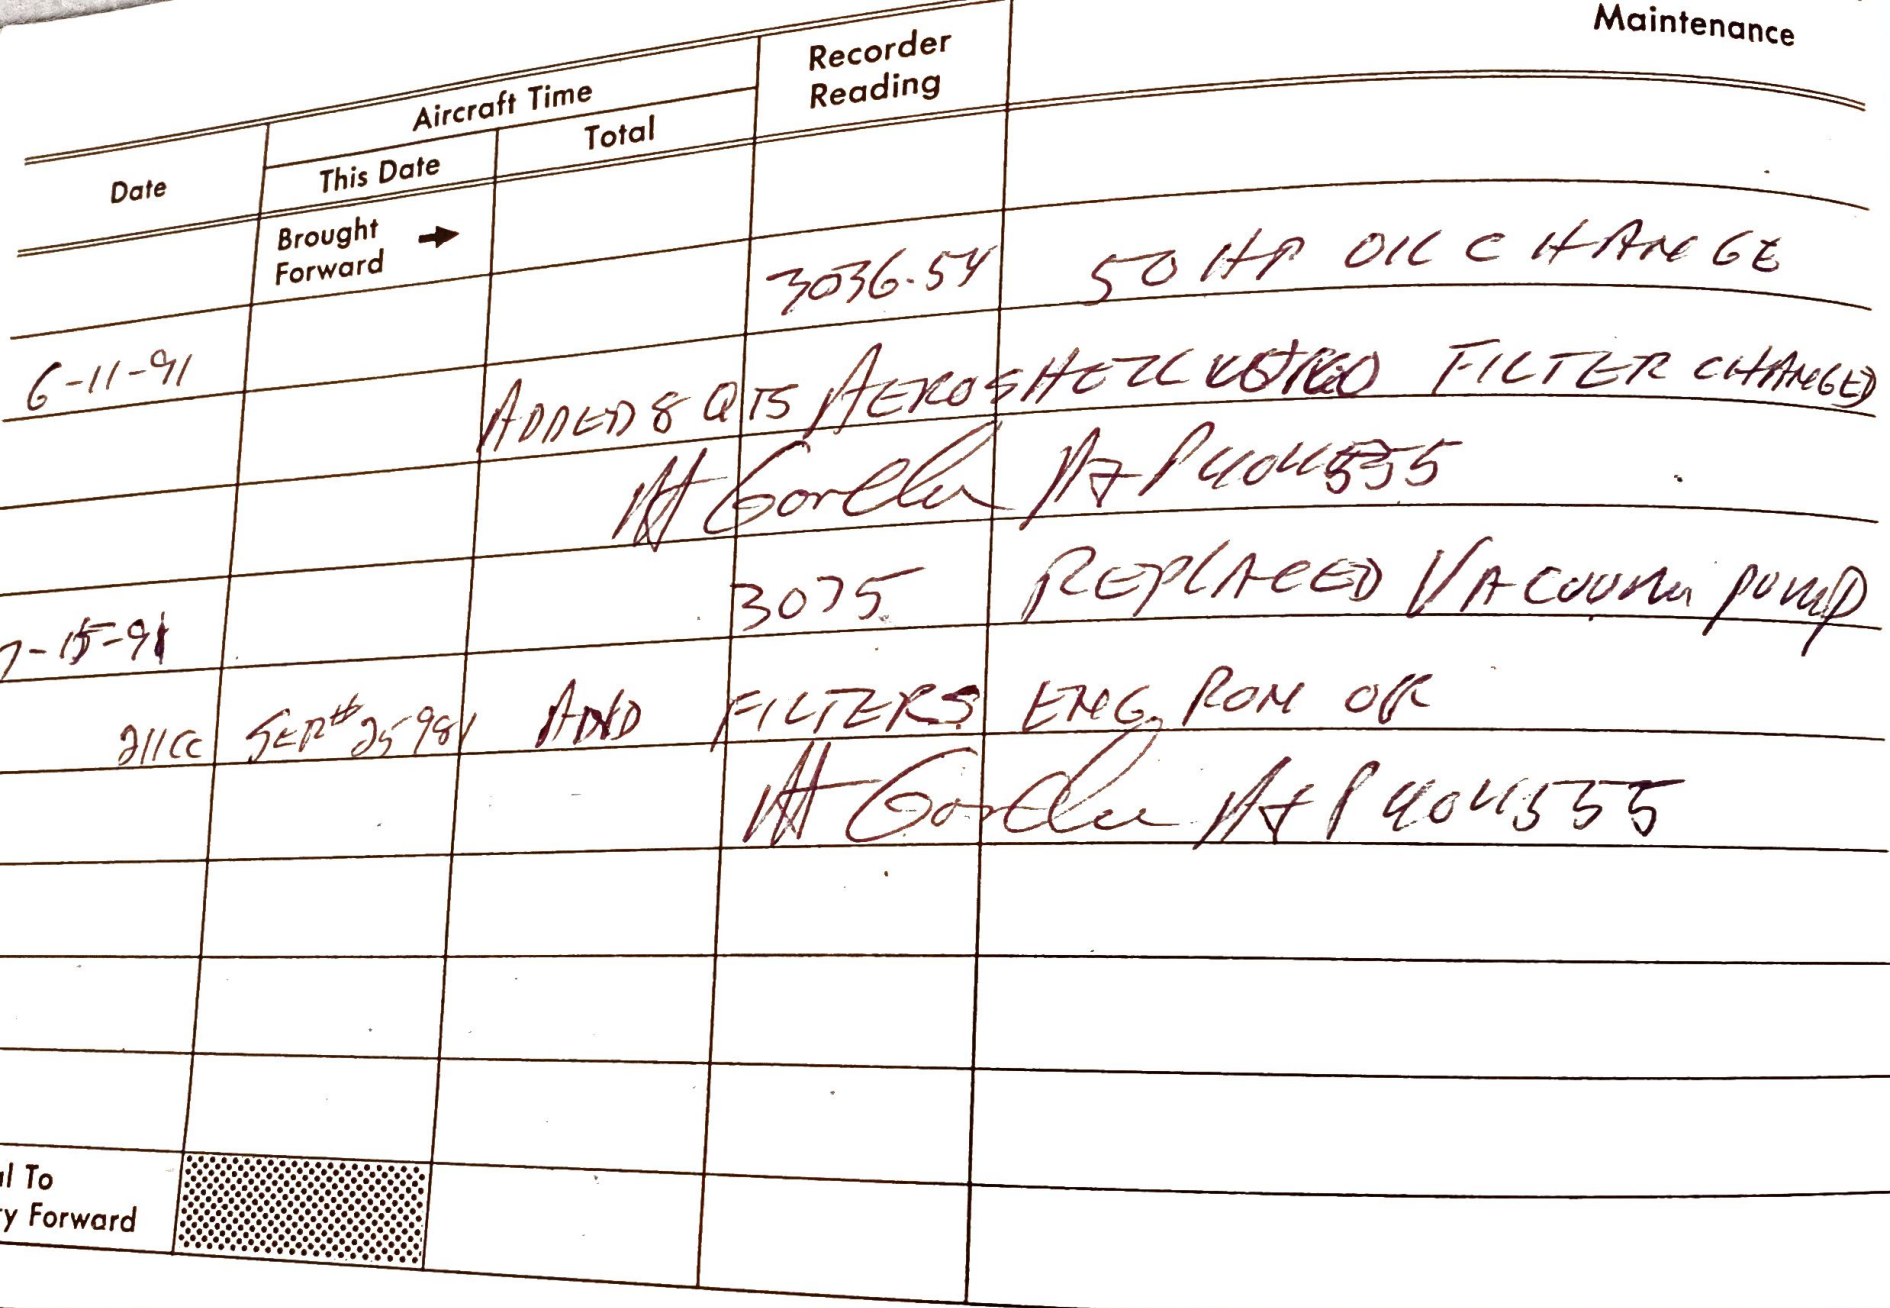 Maintenance
Recorder Reading
Aircraft Time
Date
This Date
Total
Brought Forward →
6-11-91 3036.54 50 HR OIL CHANGE
ADDED 8 QTS AEROSHELL FILTER CHANGED
A&P 404555
7-15-91 3075 REPLACED VACUUM PUMP
211CC SER# 25981 AND FILTERS ENG RUN OK
A&P 404555
al To
ry Forward